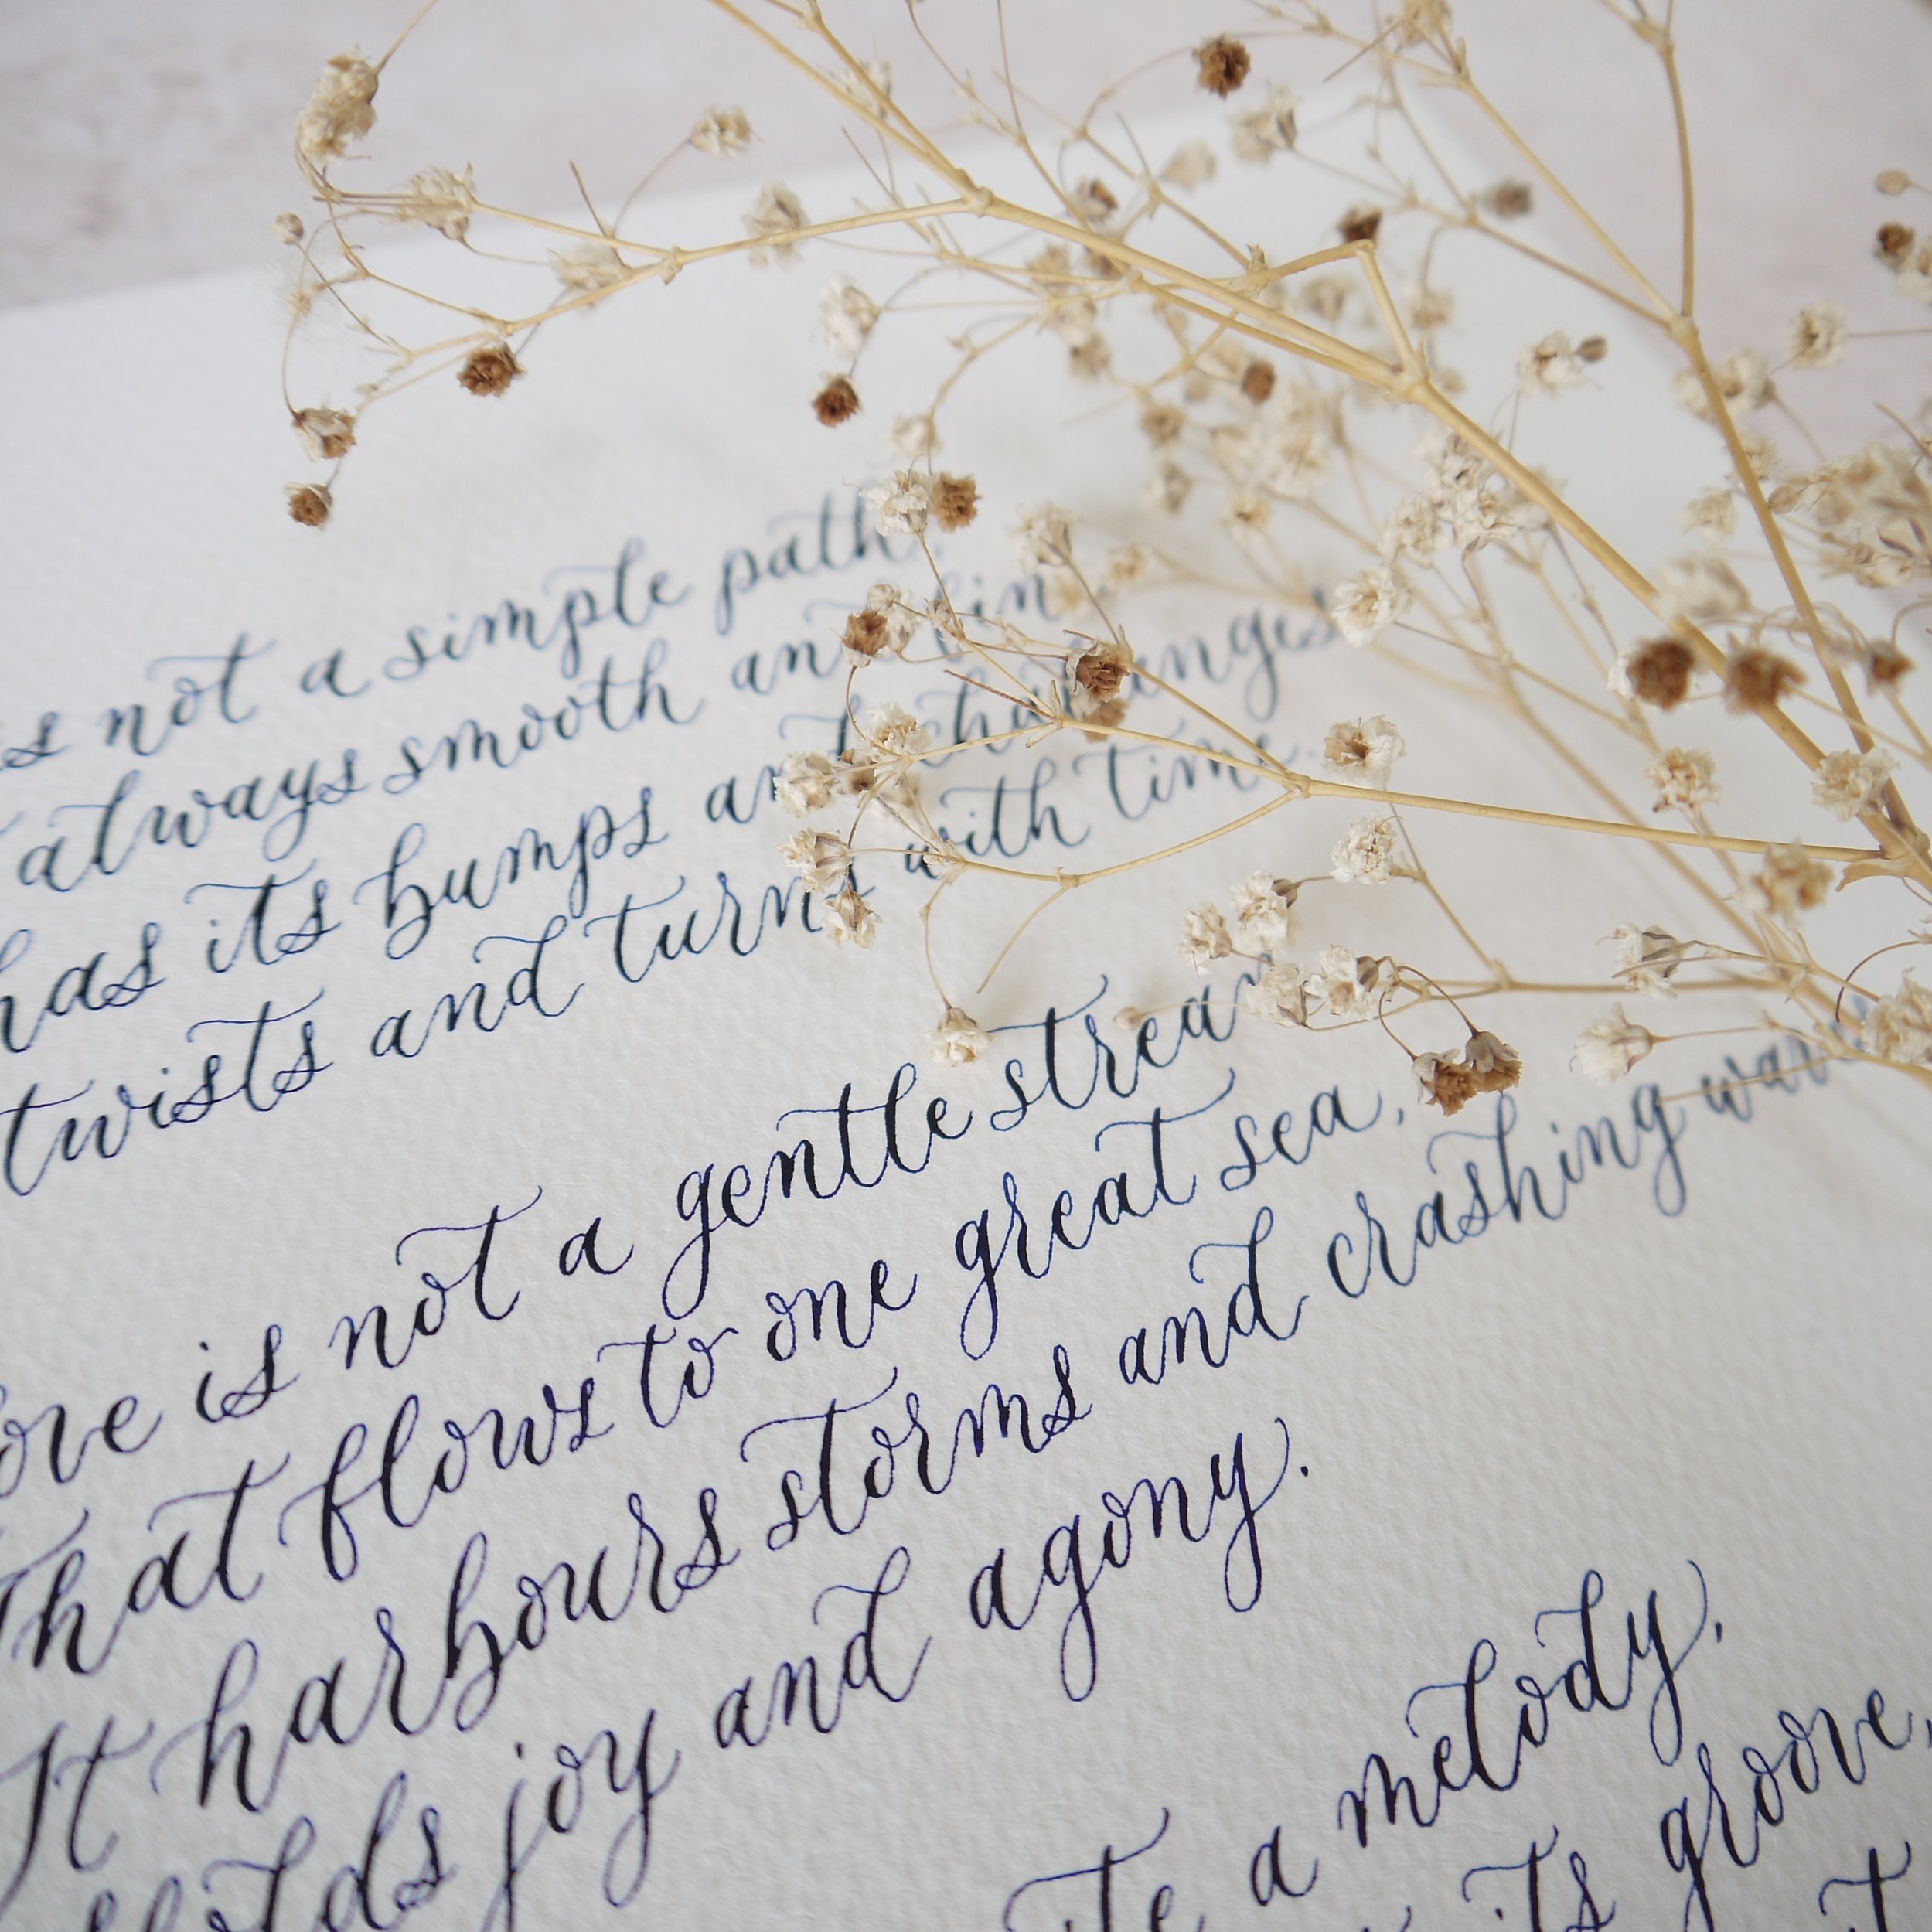 is not a simple path.
always smooth and
has its bumps and changes
twists and turns with time.
is not a gentle stream
That flows to one great sea,
It harbours storms and crashing waves
joy and agony.
a melody.
its groove,